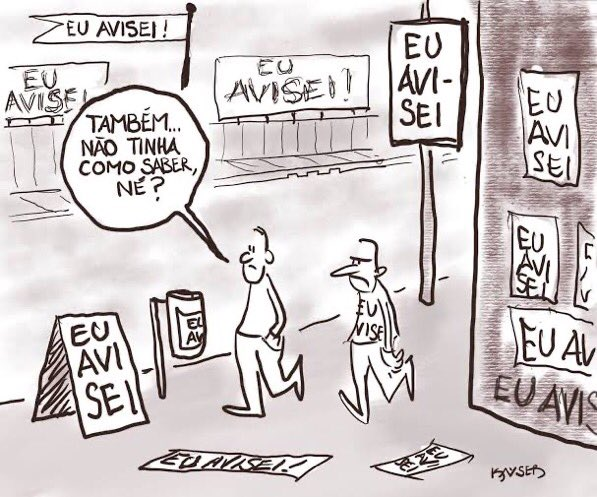 EU AVISEI!
EU
AVISEI
EU
AVISEI!
EU
AVI-
SEI
TAMBÉM...
NÃO TINHA
COMO SABER,
NÉ?
EU
AVI
SEI
EU
AVI
SEI
EU AV
EU AVIS
EU
AV
EU
VISE
EU
AVI
SEI
EU AVISEI!
KAYSER